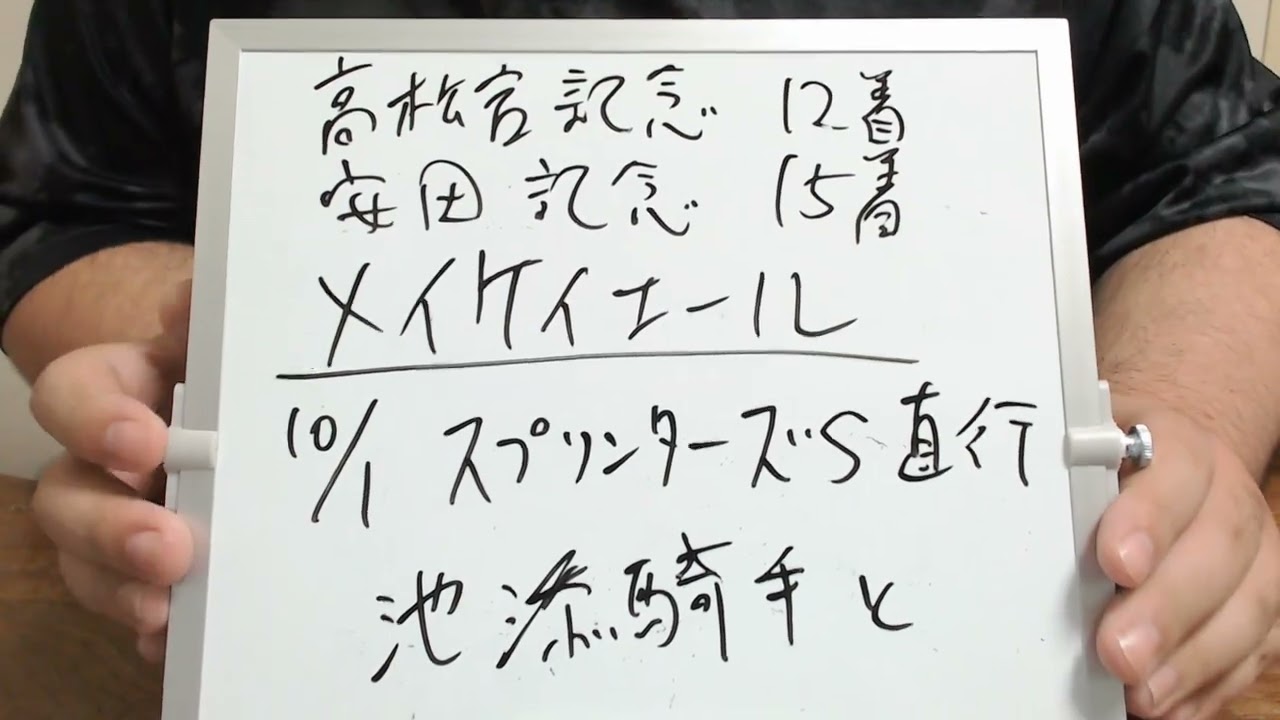 高松宮記念 12着
安田記念 15着
メイケイエール
10/1 スプリンターズS直行
池添騎手と